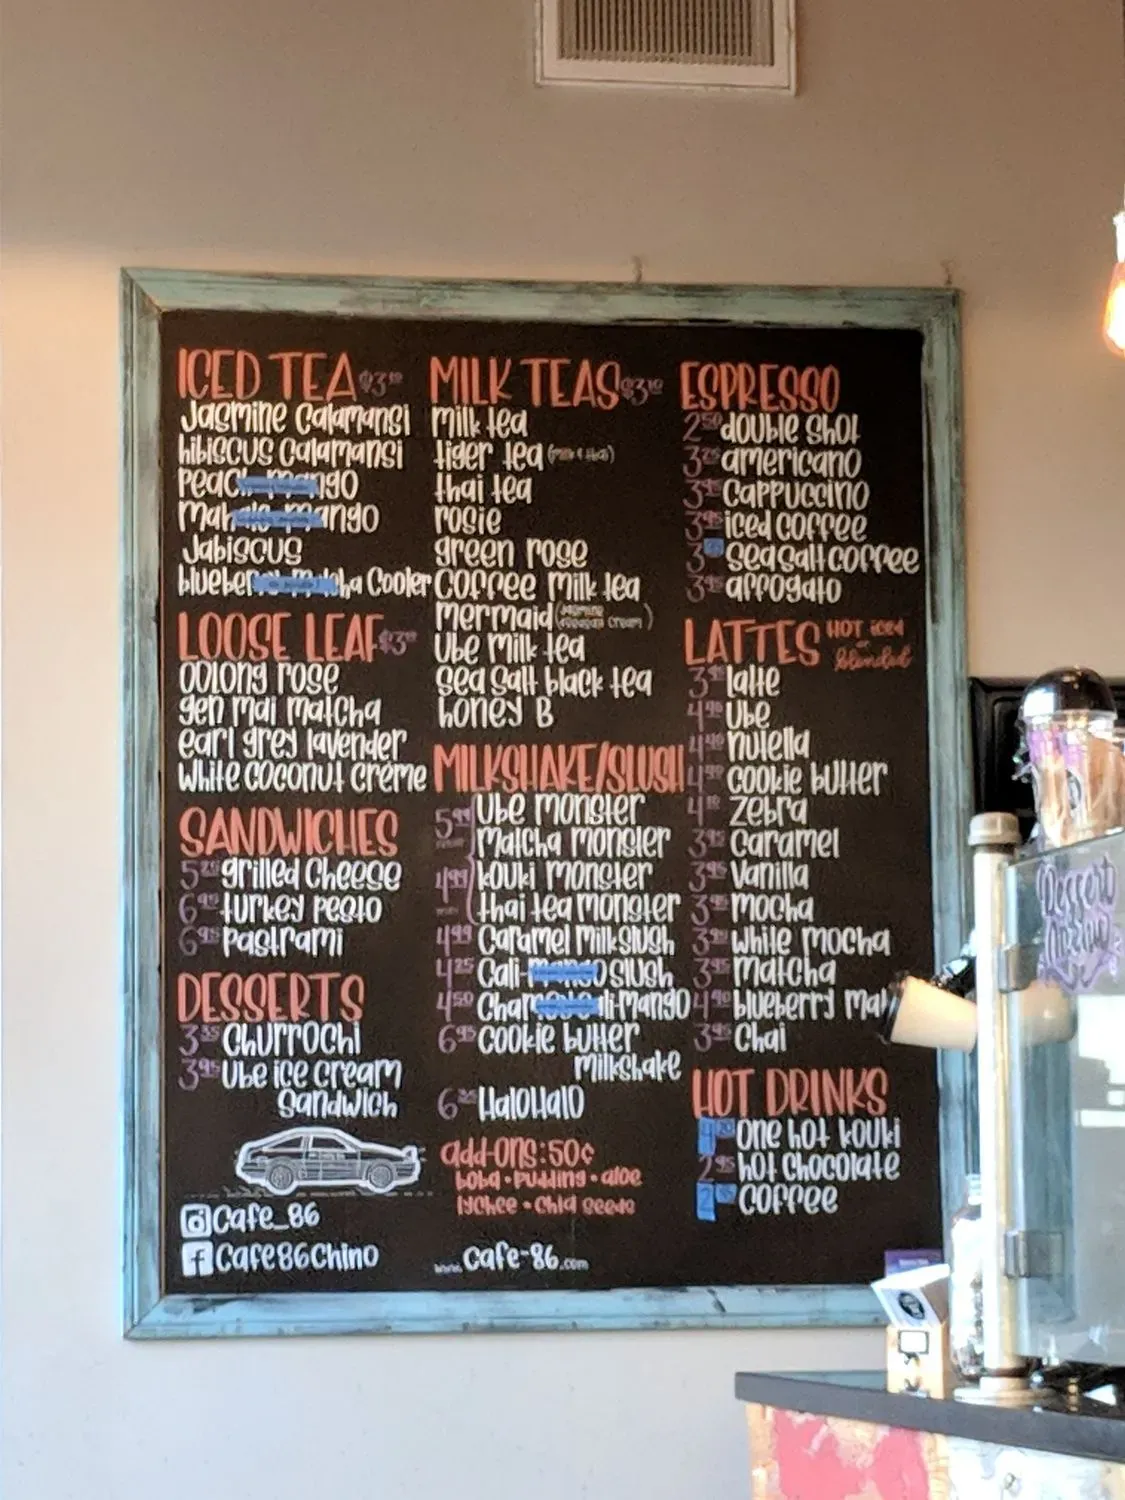 ICED TEA
Jasmine Calamansi
hibiscus Calamansi
Peach mango
mango
Jabiscus
Cooler
LOOSE LEAF
oolong rose
gen mai matcha
earl grey lavender
white coconut crème
SANDWICHES
grilled cheese
6.95 turkey pesto
6.95 pastrami
DESSERTS
Churrochi
3.95 Ube ice cream
Sandwich
Cafe_86
Cafe86Chino
MILK TEAS
milk tea
tiger tea (milk & thai)
thai tea
rosie
green rose
coffee milk tea
mermaid (Jasmine
seasalt cream)
Ube milk tea
sea salt black tea
honey B
MILKSHAKE/SLUSH
5.99 Ube monster
matcha monster
4.99 kouki monster
thai tea monster
4.99 Caramel milkslush
4.25 Cali-mango slush
4.50 mango
6.95 cookie butter
milkshake
HaloHalo
add-ons: 50¢
boba • pudding • aloe
lychee • chia seeds
www.cafe-86.com
ESPRESSO
2.50 double shot
3.25 americano
3.95 cappuccino
3.95 iced coffee
sea salt coffee
3.95 affogato
LATTES HOT iced
or
blended
latte
Ube
nutella
cookie butter
Zebra
3.95 caramel
3.95 vanilla
3.95 mocha
3.95 white mocha
3.95 matcha
blueberry
3.95 chai
HOT DRINKS
one hot kouki
2.95 hot chocolate
coffee
Dessert